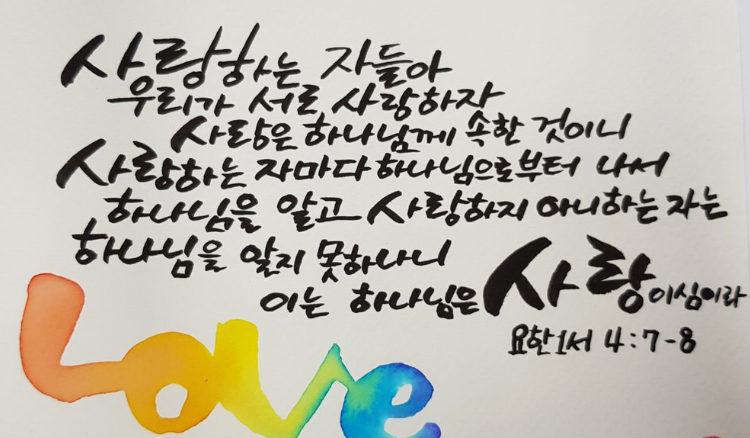 사랑하는 자들아
우리가 서로 사랑하자
사랑은 하나님께 속한 것이니
사랑하는 자마다 하나님으로부터 나서
하나님을 알고 사랑하지 아니하는 자는
하나님을 알지 못하나니
이는 하나님은 사랑이심이라
요한1서 4:7-8
Love